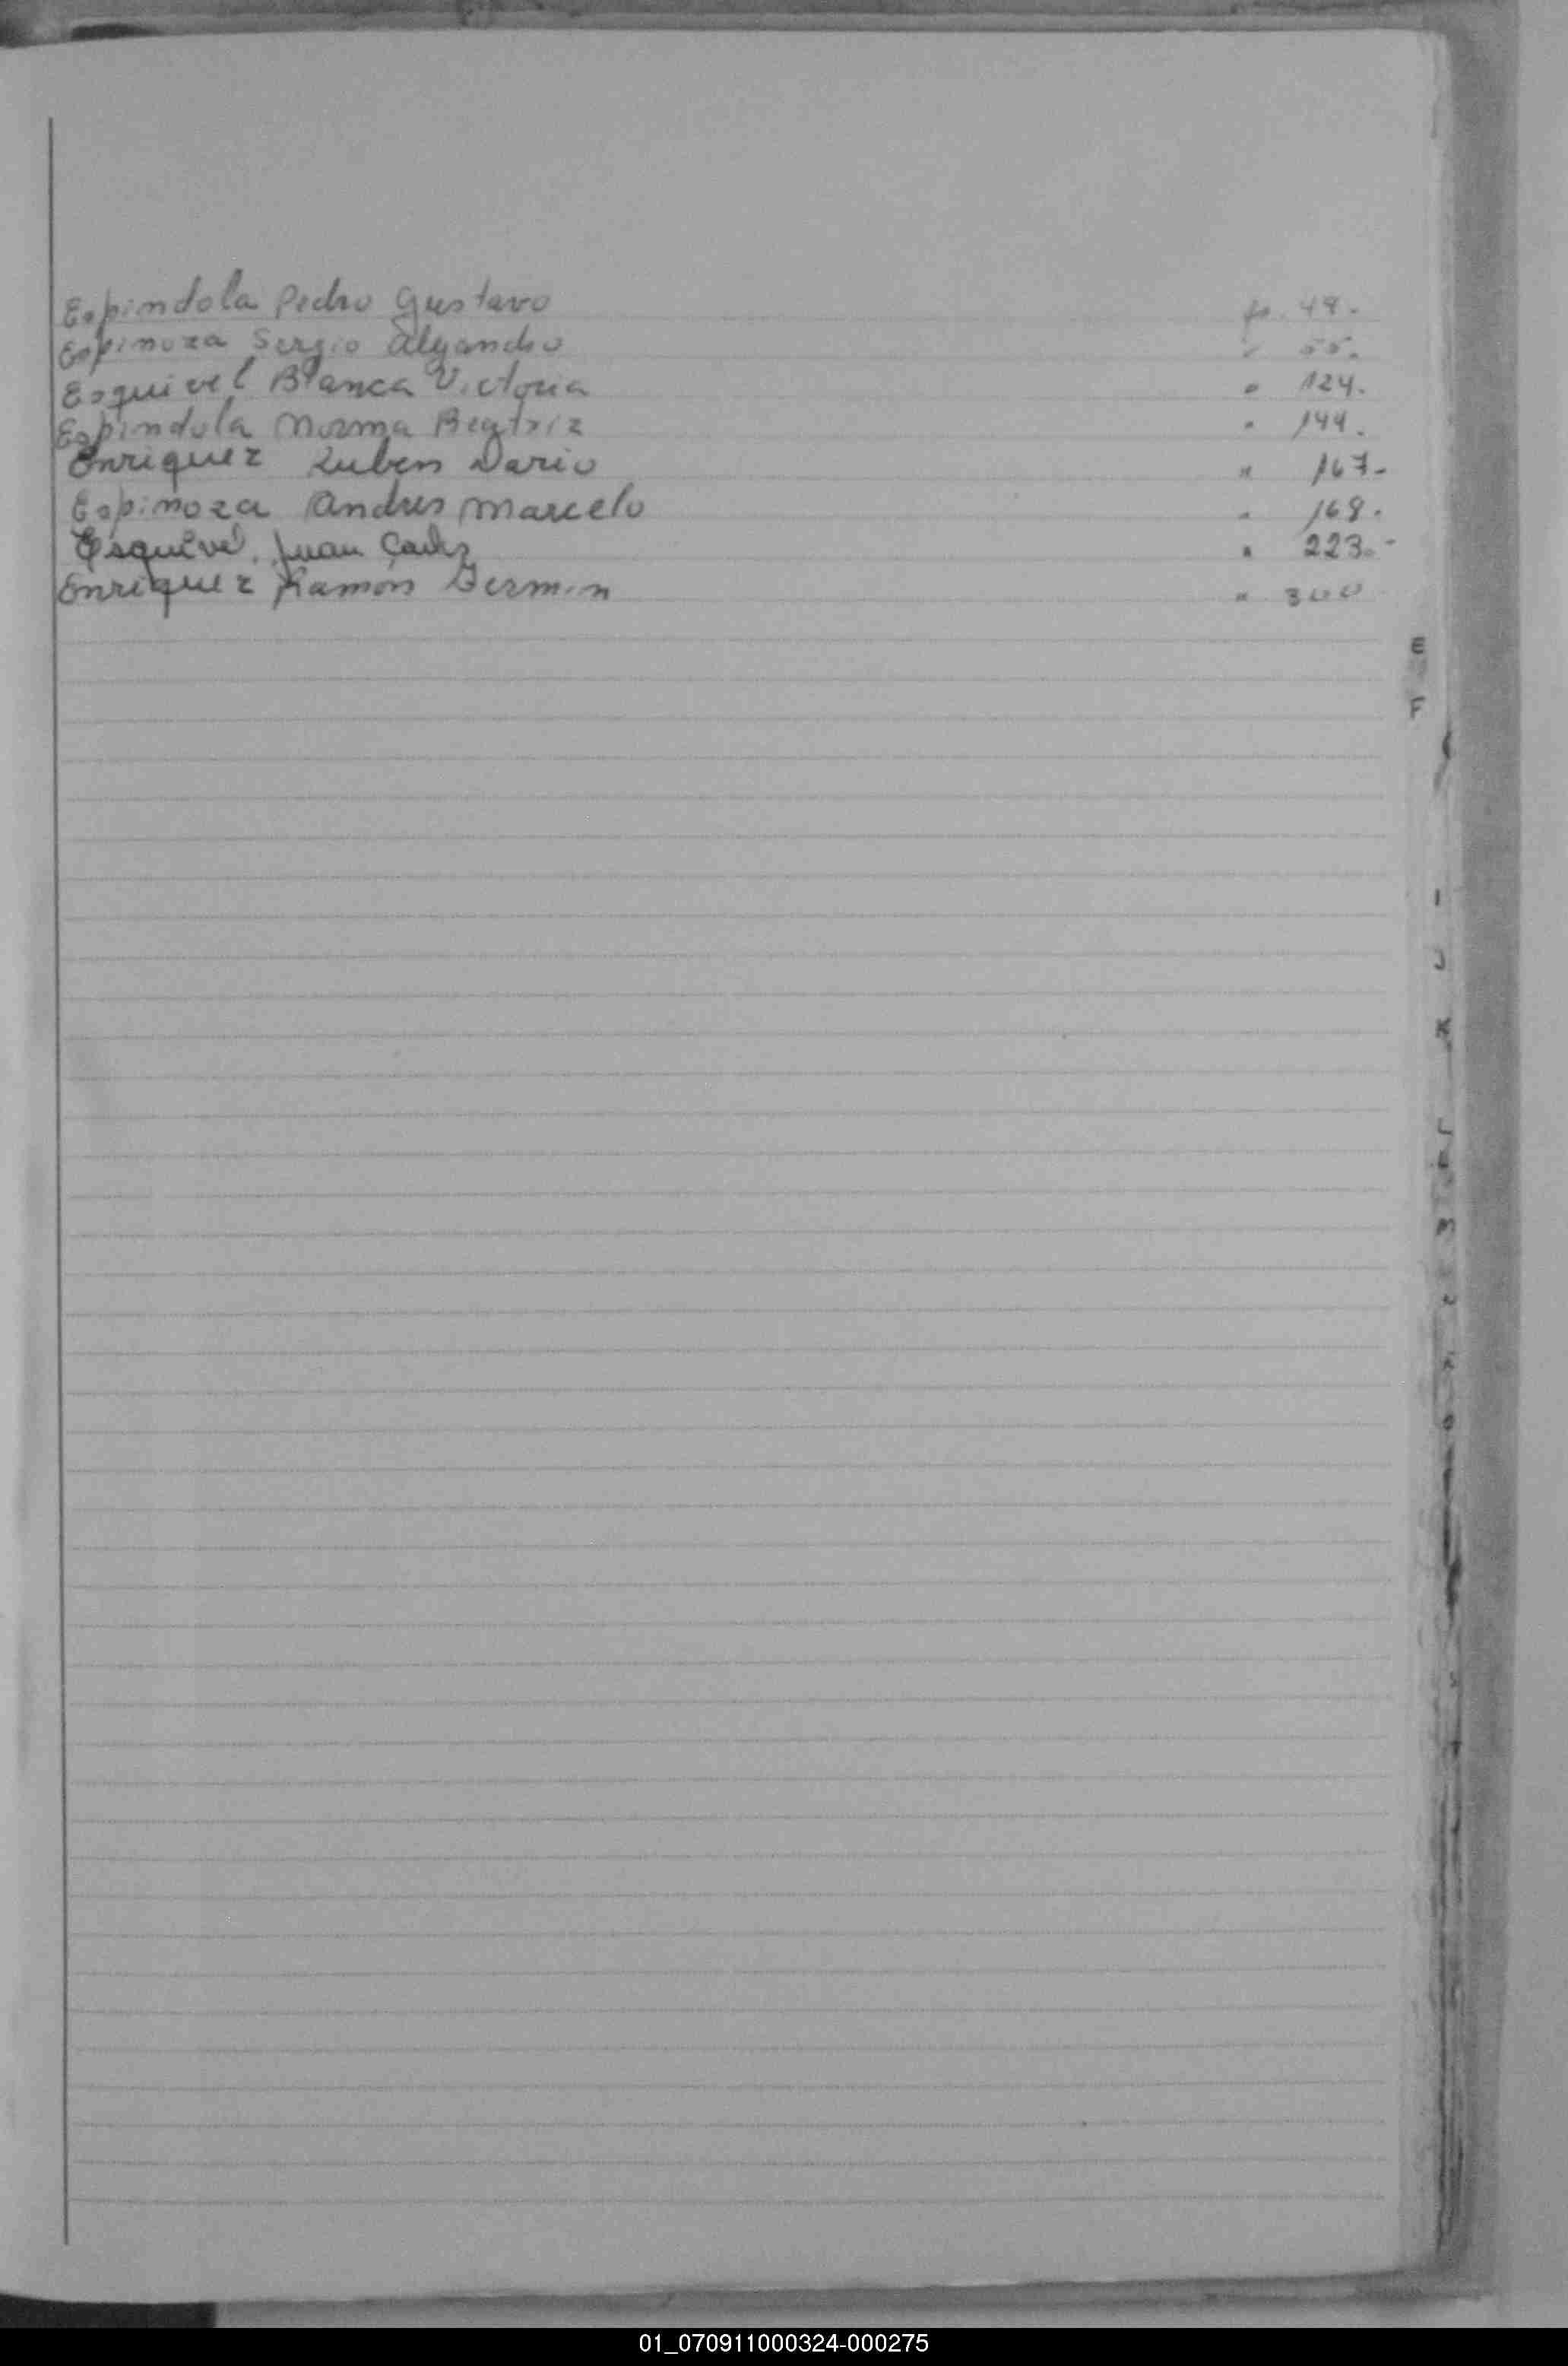 Espindola Pedro Gustavo fs. 49.
Espinoza Sergio Alejandro " 55.
Esquivel Blanca Victoria " 124.
Espindola Norma Beatriz " 144.
Enriquez Ruben Dario " 167-
Espinoza Andres Marcelo " 168.
Esquivel Juan Carlos " 223.-
Enriquez Ramon German " 300
E
F
I
J
K
L
01_070911000324-000275